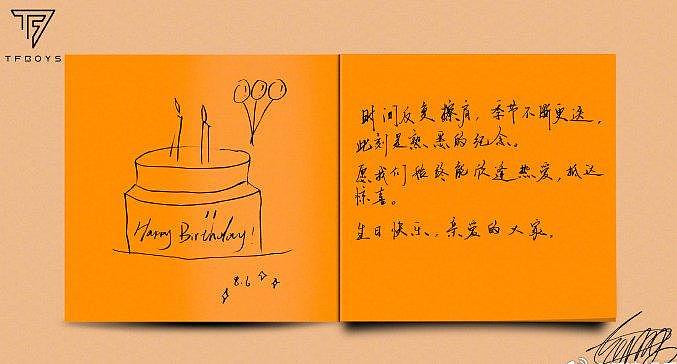 TFBOYS
Happy Birthday!
8.6
时间反复擦肩，季节不断更迭，
此刻是熟悉的纪念。
愿我们始终能欣逢热爱，抵达
惊喜。
生日快乐，亲爱的大家。